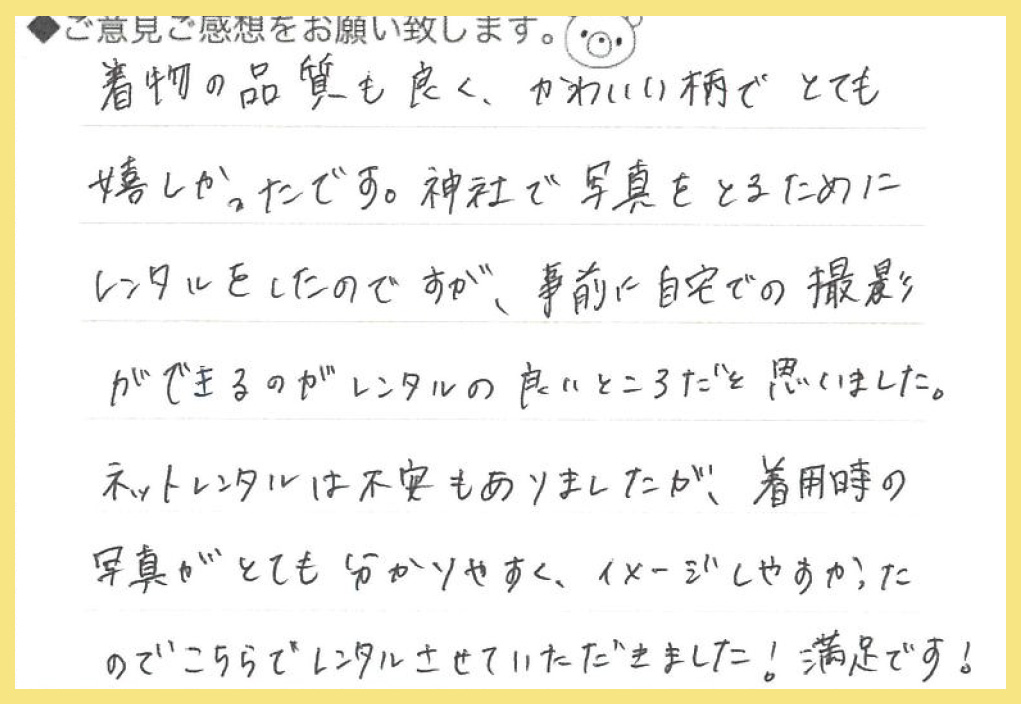 ◆ご意見ご感想をお願い致します。
着物の品質も良く、かわいい柄でとても
嬉しかったです。神社で写真をとるために
レンタルをしたのですが、事前に自宅での撮影
ができるのがレンタルの良いところだと思いました。
ネットレンタルは不安もありましたが、着用時の
写真がとても分かりやすく、イメージしやすかった
のでこちらでレンタルさせていただきました!満足です!